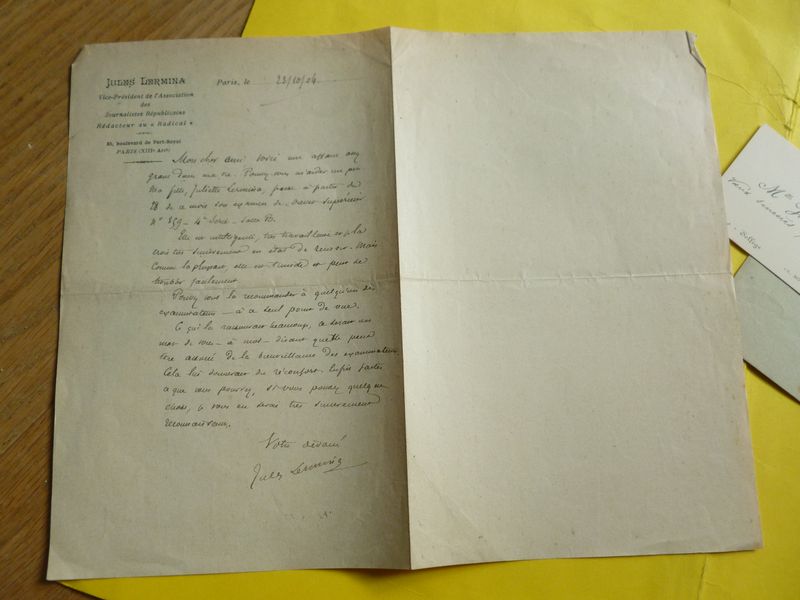 JULES LERMINA
Vice-Président de l'Association
des
Journalistes Républicains
Rédacteur au « Radical »
Boulevard de Port-Royal
PARIS (XIIIe Arrt)
Paris, le 23/10/04
Mon cher ami voici une affaire assez
grave dans ma vie. Pouvez-vous m'aider un peu
Ma fille, Juliette Lermina, passe à partir du
28 de ce mois son examen de Brevet supérieur
N° 859 - 4e Série - Salle B.
Elle est intelligente, très travailleuse et je la
crois très sincèrement en état de réussir. Mais
comme la plupart, elle est timide et peut se
troubler facilement.
Pouvez-vous la recommander à quelqu'un des
examinateurs — à ce seul point de vue.
Ce qui la rassurerait beaucoup, ce serait un
mot de vous - à moi - disant qu'elle peut
être assurée de la bienveillance des examinateurs
Cela lui donnerait du réconfort. Enfin faites
ce que vous pourrez, si vous pouvez quelque
chose, je vous en serai très sincèrement
reconnaissant.
Votre dévoué
Jules Lermina
Mme